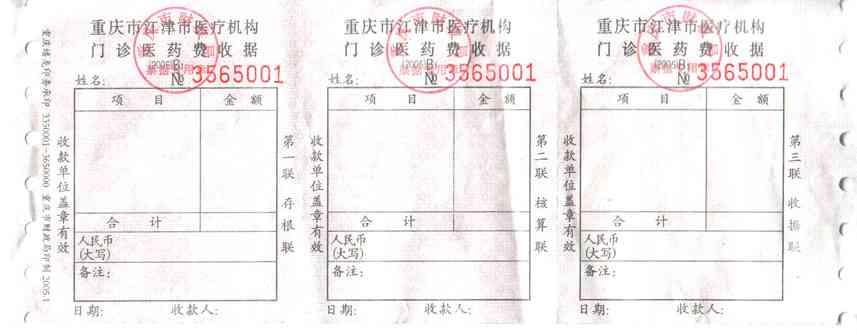 重庆市江津市医疗机构
门诊医药费收据
(2005)B
№3565001
姓名:
项 目 金 额
合 计
人民币
(大写)
备注:
日期: 收款人:
收款单位盖章有效
第一联 存根联
重庆市江津市医疗机构
门诊医药费收据
(2005)B
№3565001
姓名:
项 目 金 额
合 计
人民币
(大写)
备注:
日期: 收款人:
收款单位盖章有效
第二联 核算联
重庆市江津市医疗机构
门诊医药费收据
(2005)B
№3565001
姓名:
项 目 金 额
合 计
人民币
(大写)
备注:
日期: 收款人:
收款单位盖章有效
第三联 收据联
3350001-3650000 重庆市财政局印制 2005.1